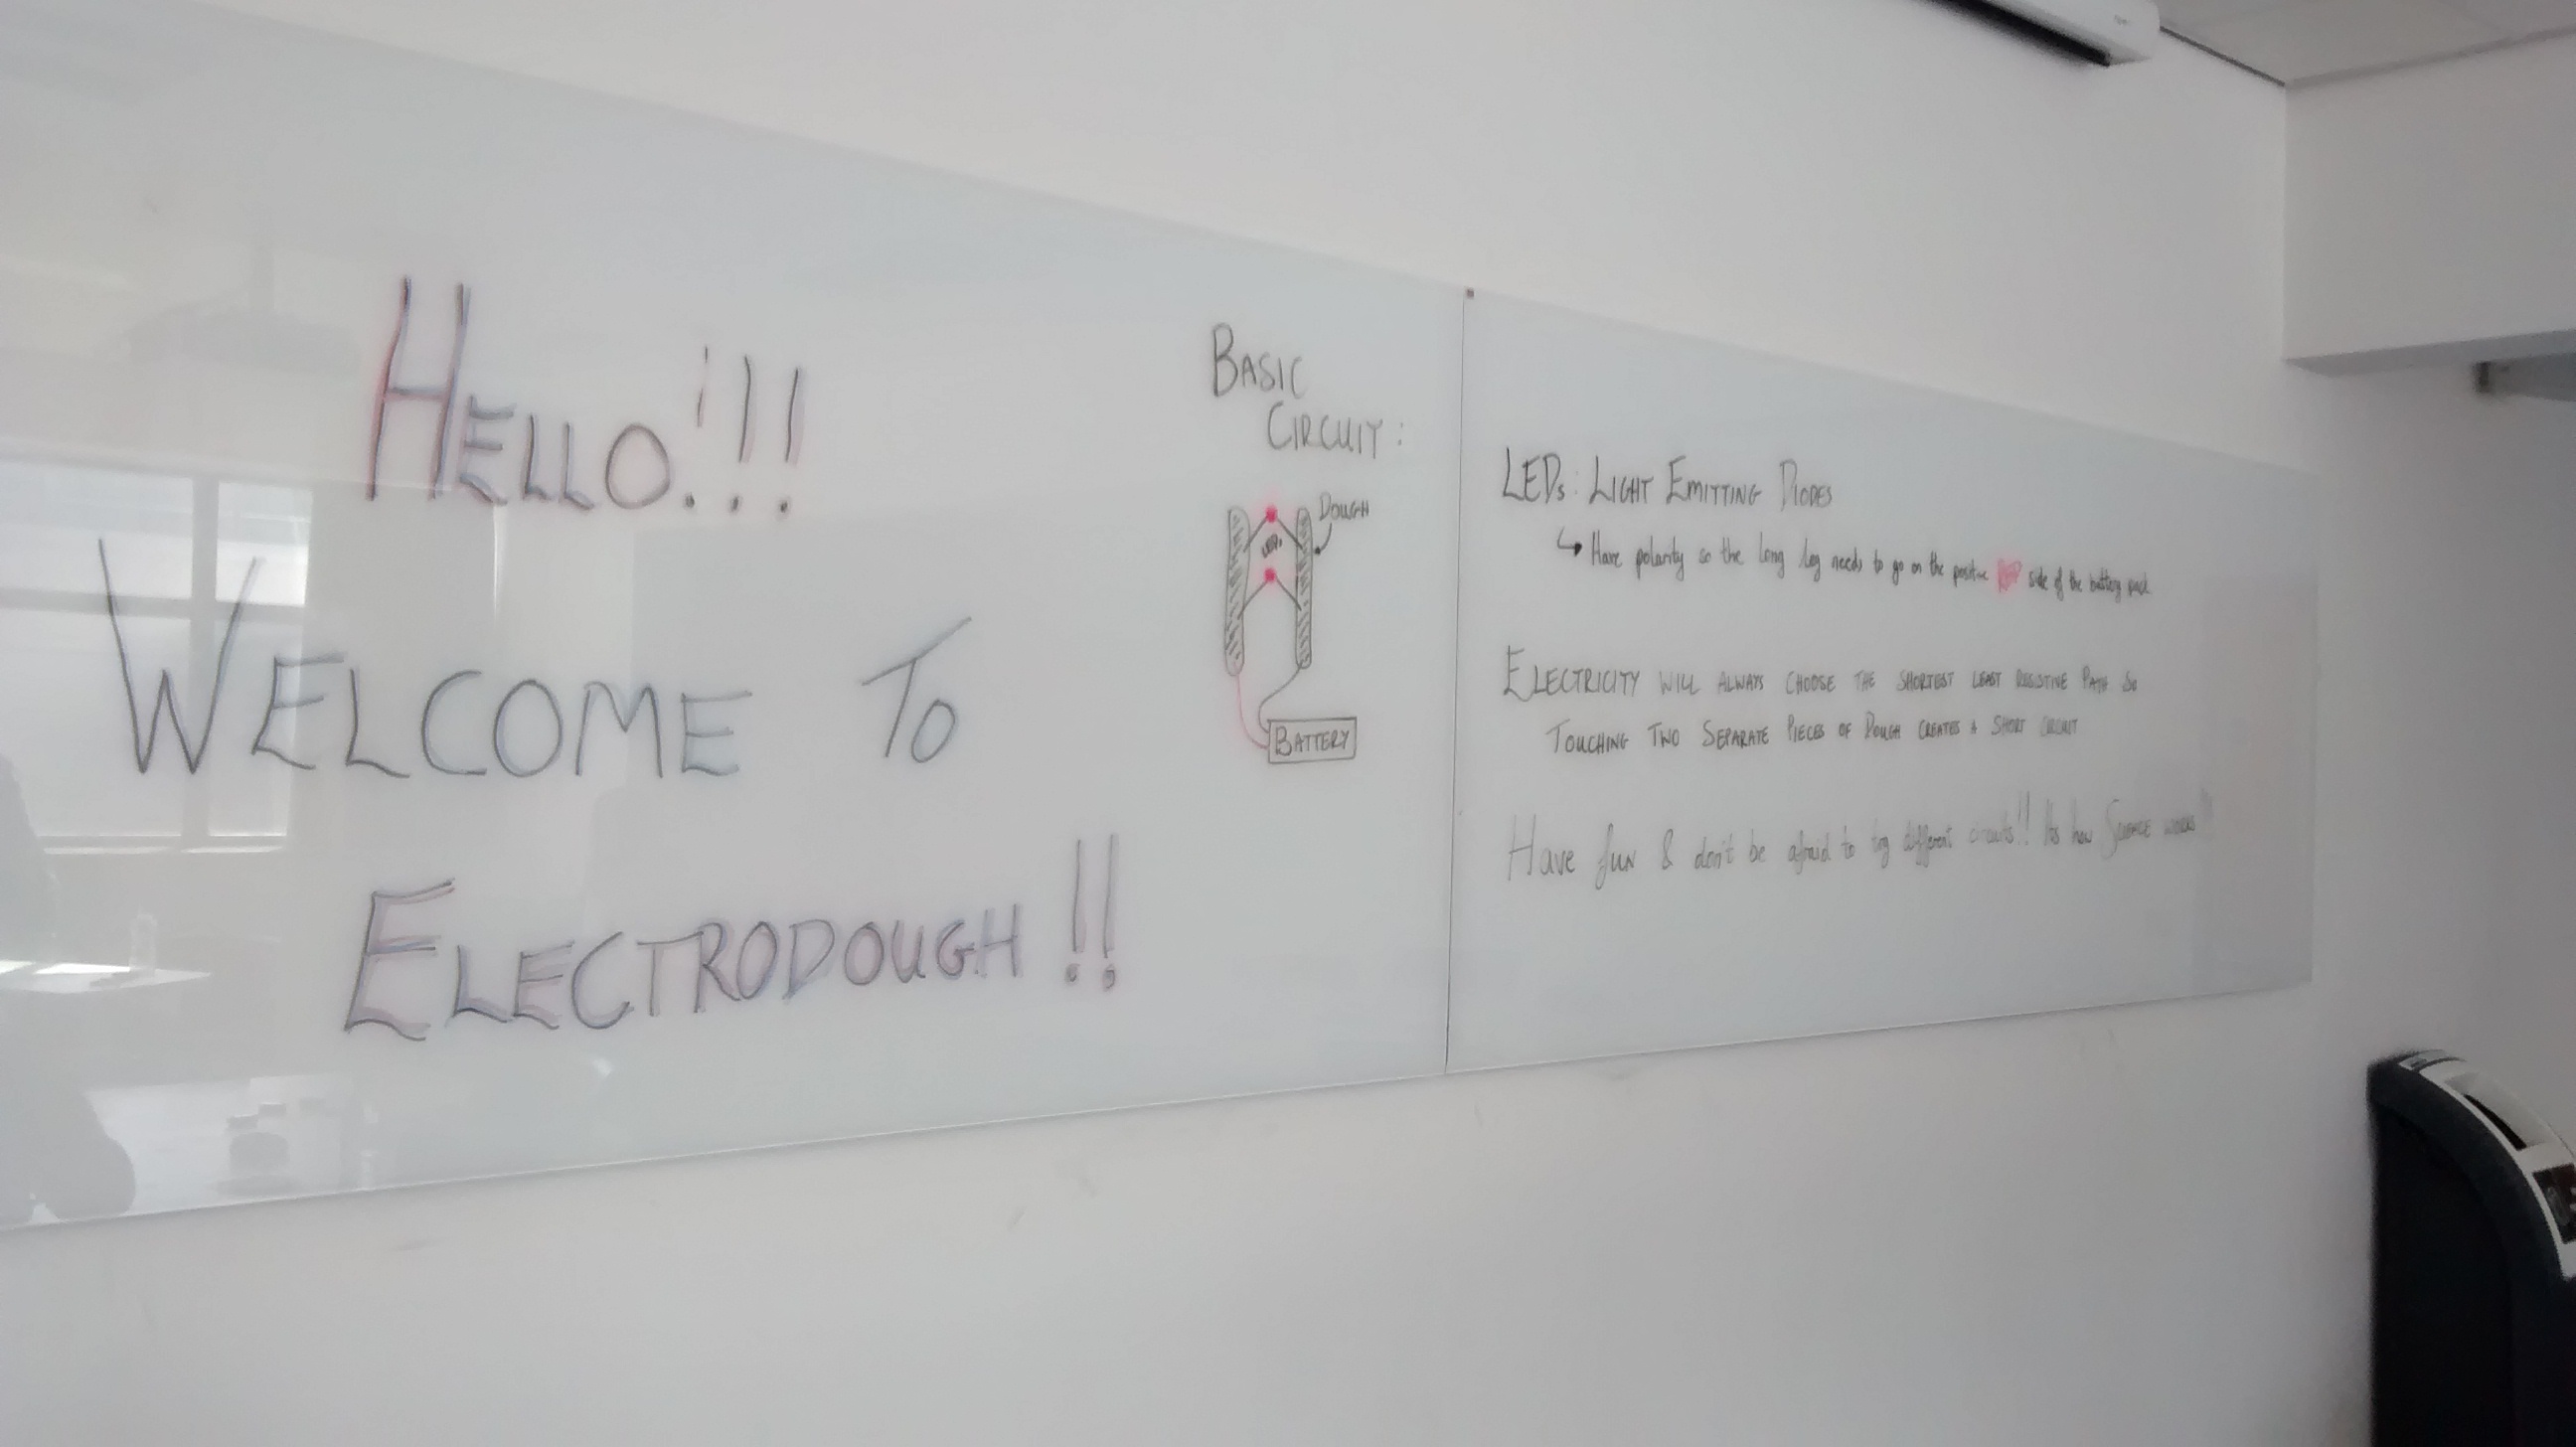 HELLO!!!
WELCOME TO
ELECTRODOUGH!!
BASIC
CIRCUIT:
DOUGH
LEDs
BATTERY
LEDs: LIGHT EMITTING DIODES
↳ Have polarity so the long leg needs to go on the positive side of the battery pack
ELECTRICITY WILL ALWAYS CHOOSE THE SHORTEST LEAST RESISTIVE PATH SO
TOUCHING TWO SEPARATE PIECES OF DOUGH CREATES A SHORT CIRCUIT
Have fun & don't be afraid to try different circuits!! Its how SCIENCE WORKS!!